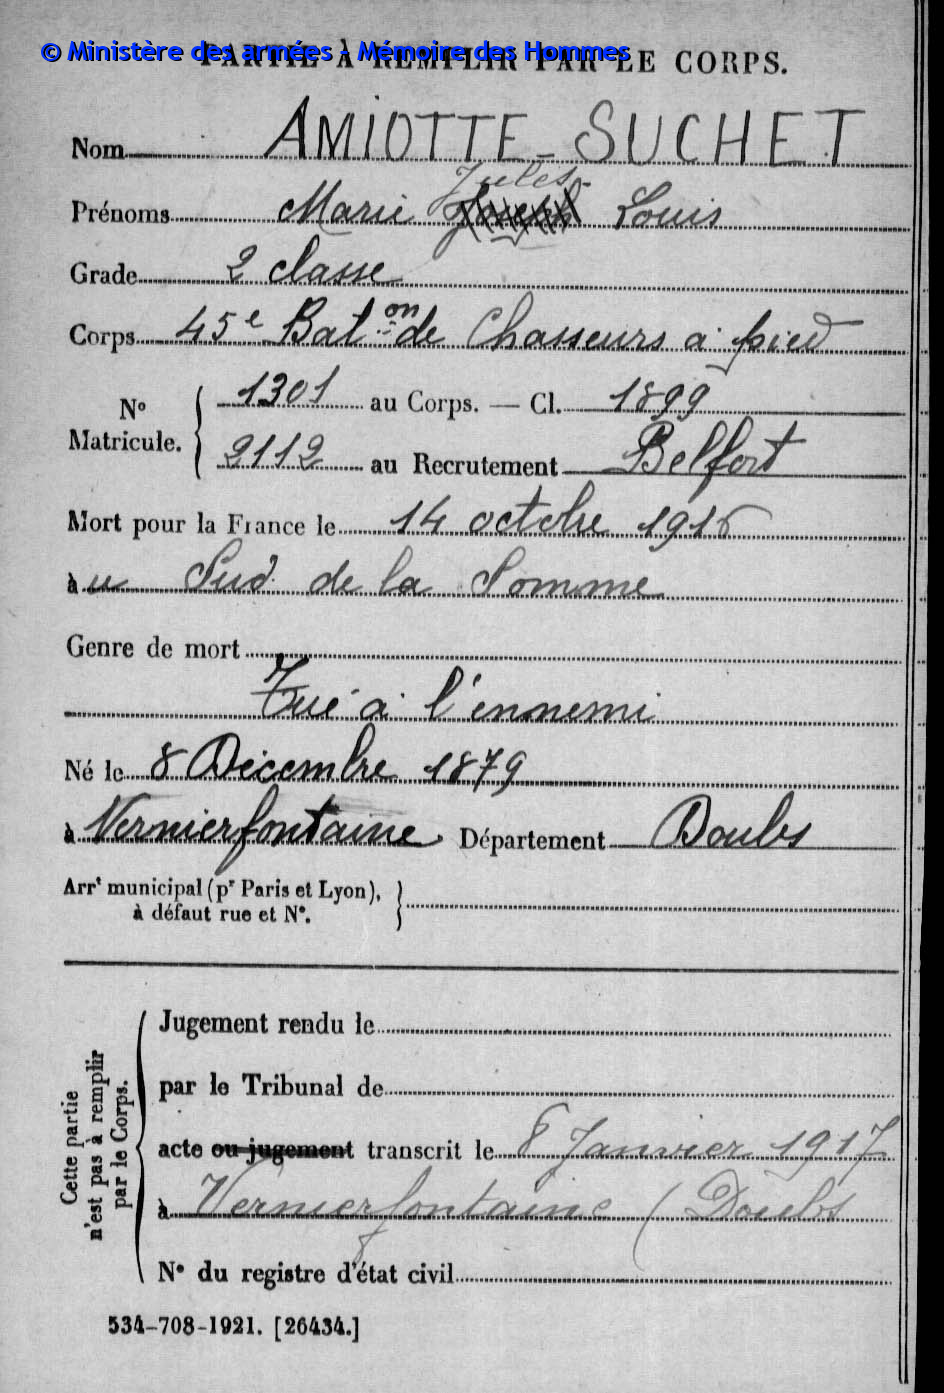 © Ministère des armées - Mémoire des Hommes
PARTIE À REMPLIR PAR LE CORPS.
Nom AMIOTTE-SUCHET
Jules
Prénoms Marie Joseph Louis
Grade 2 classe
Corps 45e Bat on de Chasseurs à pied
No Matricule. { 1301 au Corps. — Cl. 1899
2112 au Recrutement Belfort
Mort pour la France le 14 octobre 1916
à u Sud de la Somme
Genre de mort
Tué à l'ennemi
Né le 8 Décembre 1879
à Vernierfontaine Département Doubs
Arrt municipal (pr Paris et Lyon),
à défaut rue et No.
Cette partie
n'est pas à remplir
par le Corps.
Jugement rendu le
par le Tribunal de
acte ou jugement transcrit le 8 Janvier 1917
à Vernierfontaine (Doubs
No du registre d'état civil
534-708-1921. [26434.]